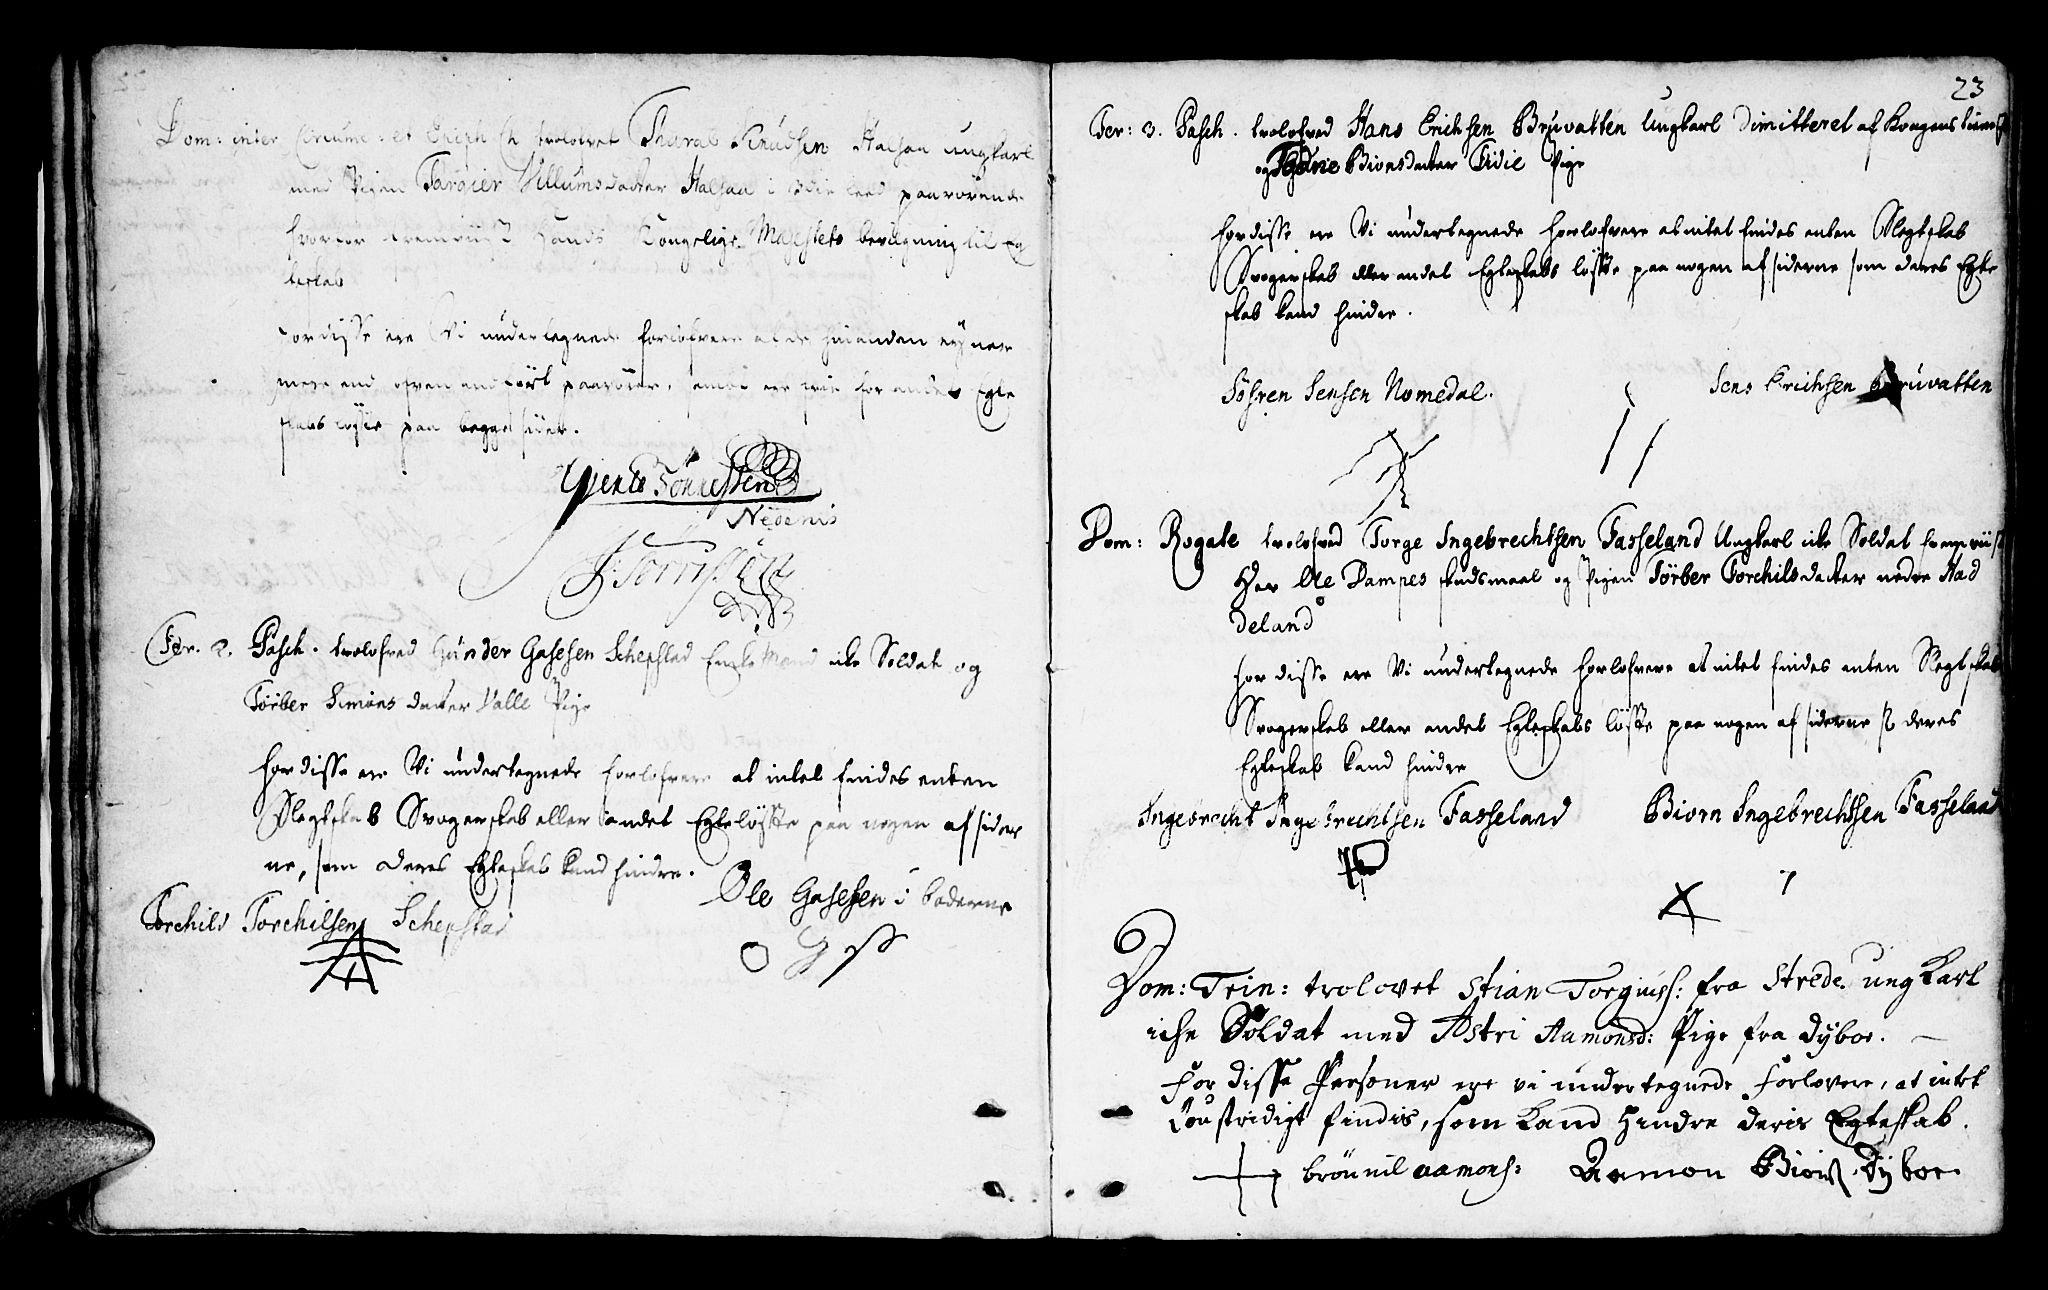 Dom: inter Circumc: et Epiph trolovet Tharal Knudsen Halsaa ungkarl
med Pigen Targier Villumsdatter Halsaa i 3die leed paarørende
hvorfor fremviist Hands Kongelige Majestets bevilgning til Eg
teskab
for disse ere Vi undertegnede forlofvere at de hinanden ey nær
mere end ofven anført paarører, samt ere frie for andet Egte
skabs løfte paa begge sider.
Gjert Tønnessen
Nedenis
J: Torrissen
Fer. 2. Pasch. trolofved Gunder Gasesen Schefstad Enke Mand icke Soldat og
Tørber Simons datter Valle Pige
for disse ere Vi undertegnede forlofvere at intet findes enten
Slegtskab Svogerskab eller andet Egteløfte paa nogen af sider
ne, som deres Egteskab kand hindre.
Torchild Torchilsen Schefstad
Ole Gasesen i boderne
O G ss
23
Fer: 3. Pasch. trolofved Hans Erichsen Bruvatten Ungkarl Dimitteret af Kongens tieniste
og Biørnsdatter Eidie Pige
for disse ere Vi undertegnede forlofvere at intet findes enten Slegtskab
Svogerskab eller andet Egteskabs løfte paa nogen af siderne som deres Egte
skab kand hindre.
Søfren Jensen Nomedal.
Jens Erichsen Bruvatten
Dom: Rogate trolofved Torge Ingebrechtsen Fasseland Ungkarl icke Soldat fremviist
Her Ole Dampes skudsmaal og Pigen Tørber Torchilsdatter nedre Aad
deland
for disse ere Vi undertegnede forlofvere at intet findes enten Slegtskab
Svogerskab eller andet Egteskabs løfte paa nogen af siderne deres
Egteskab kand hindre
Ingebrecht Ingebrechtsen Fasseland
Biørn Ingebrechtsen Fasseland
Dom: Trin: trolovet Stian Torgiuss: fra Strede ungkarl
iche Soldat med Astri Aamonsd: Pige fra Dyboe.
For disse Personer ere vi undertegnede Forlovere, at intet
findis, som kand hindre deris Egteskab.
brøunil aamons: Aamon Dyboe